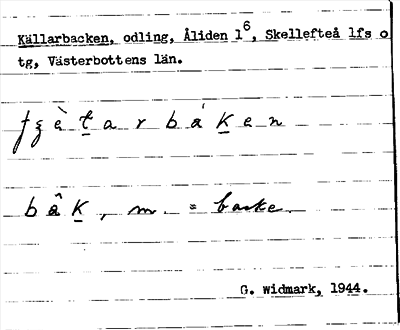 Källarbacken, odling, Åliden 1⁶, Skellefteå lfs o
tg, Västerbottens län.
b â K̲, m. = backe.
G. Widmark, 1944.